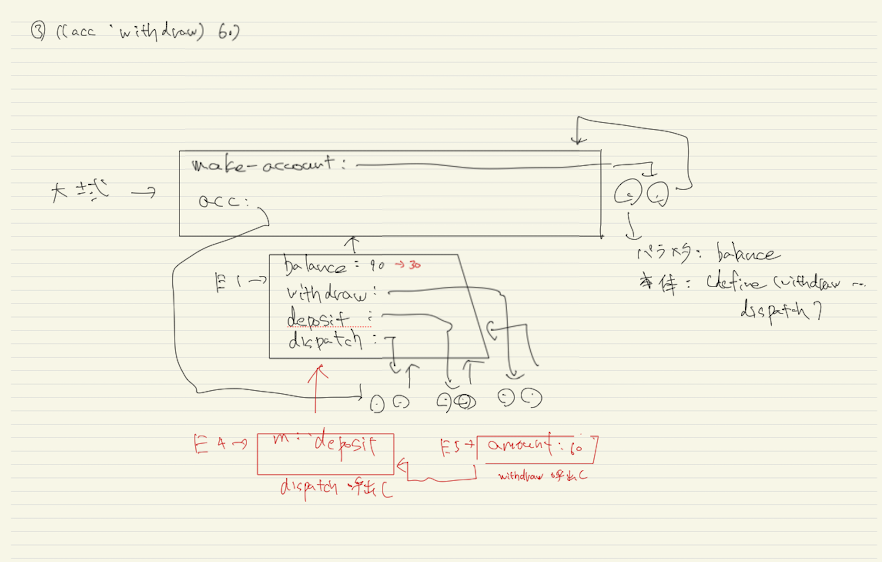 ③ ((acc 'withdraw) 60)
make-account:
大域 →
acc:
パラメタ: balance
本体: (define (withdraw …
dispatch)
E1→
balance: 90 →30
withdraw:
deposit :
dispatch:
E4→
m: 'deposit
E5→
amount: 60
dispatch 呼出し
withdraw 呼出し